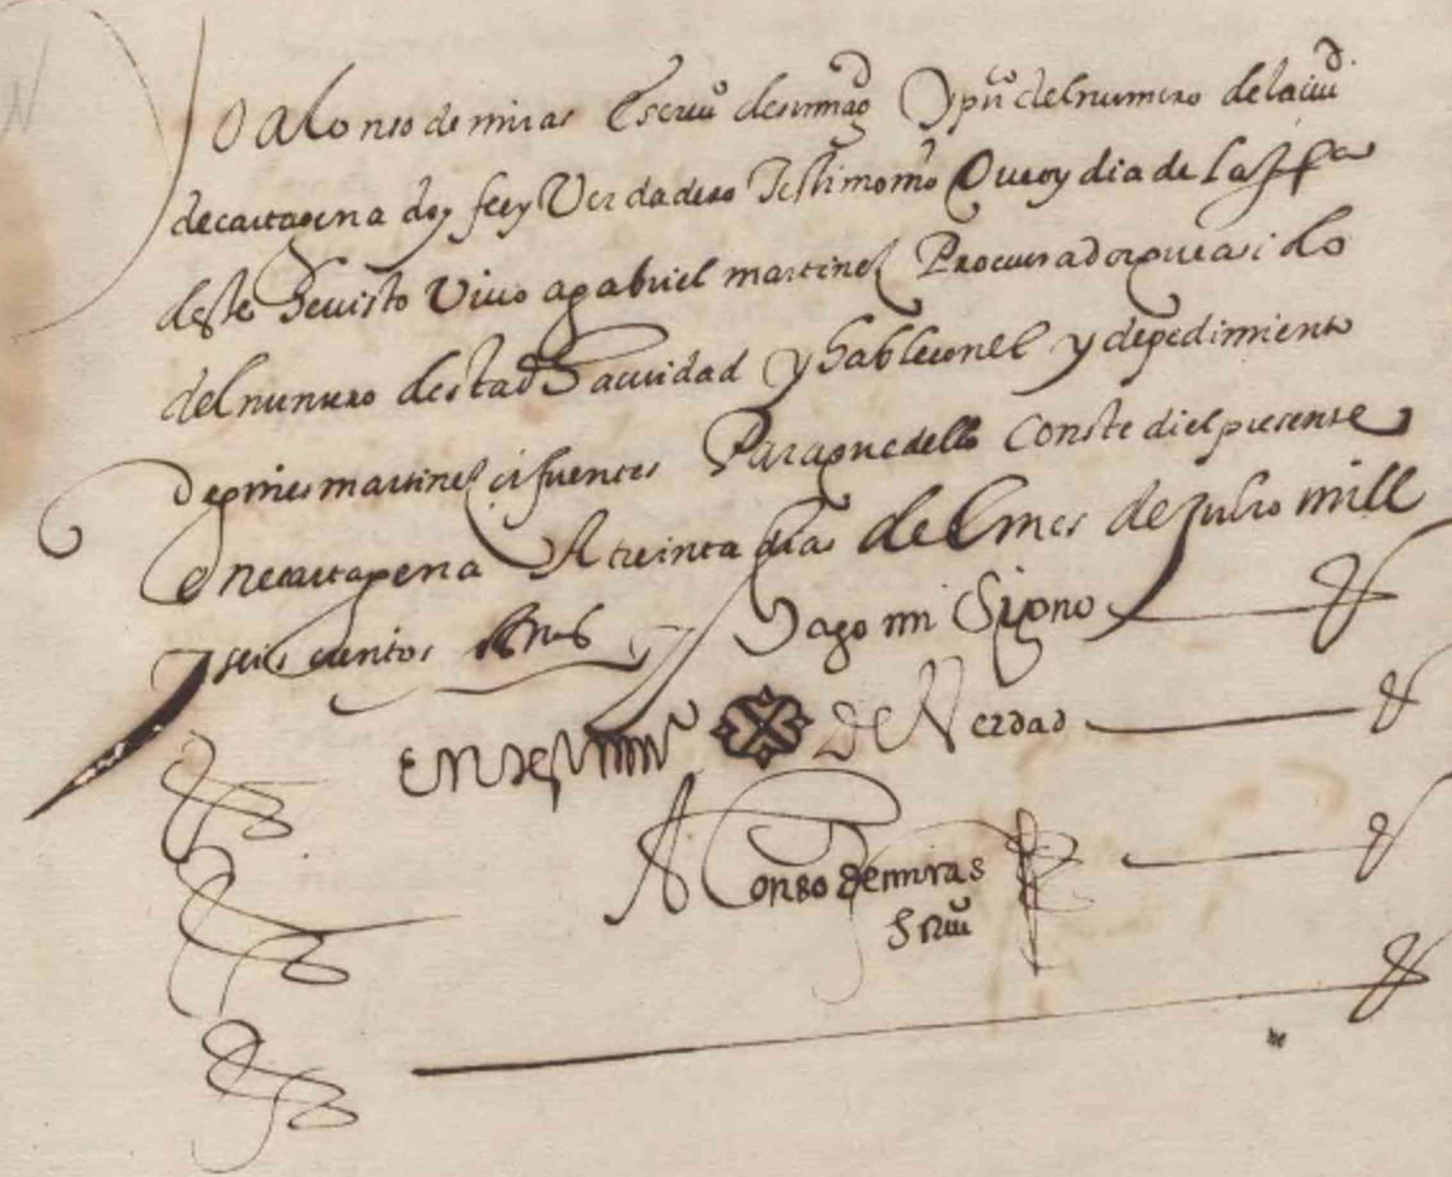 Yo alonso de miras escriuº de su magd y puº del numero de la ciud
de cartagena doy fee y Verdadero Testimonio Que oy dia de la ffa
deste he uisto Viuo a gabriel martinez Procurador que a sido
del numero desta dha ciudad y hable con el y de pedimiento
de gines martinez cifuentes Para que dello Conste di el presente
en cartagena A treinta dias del mes de Julio mill
y seis cientos años hago mi Signo
en testimº de Verdad
Alonso de miras
sriuº